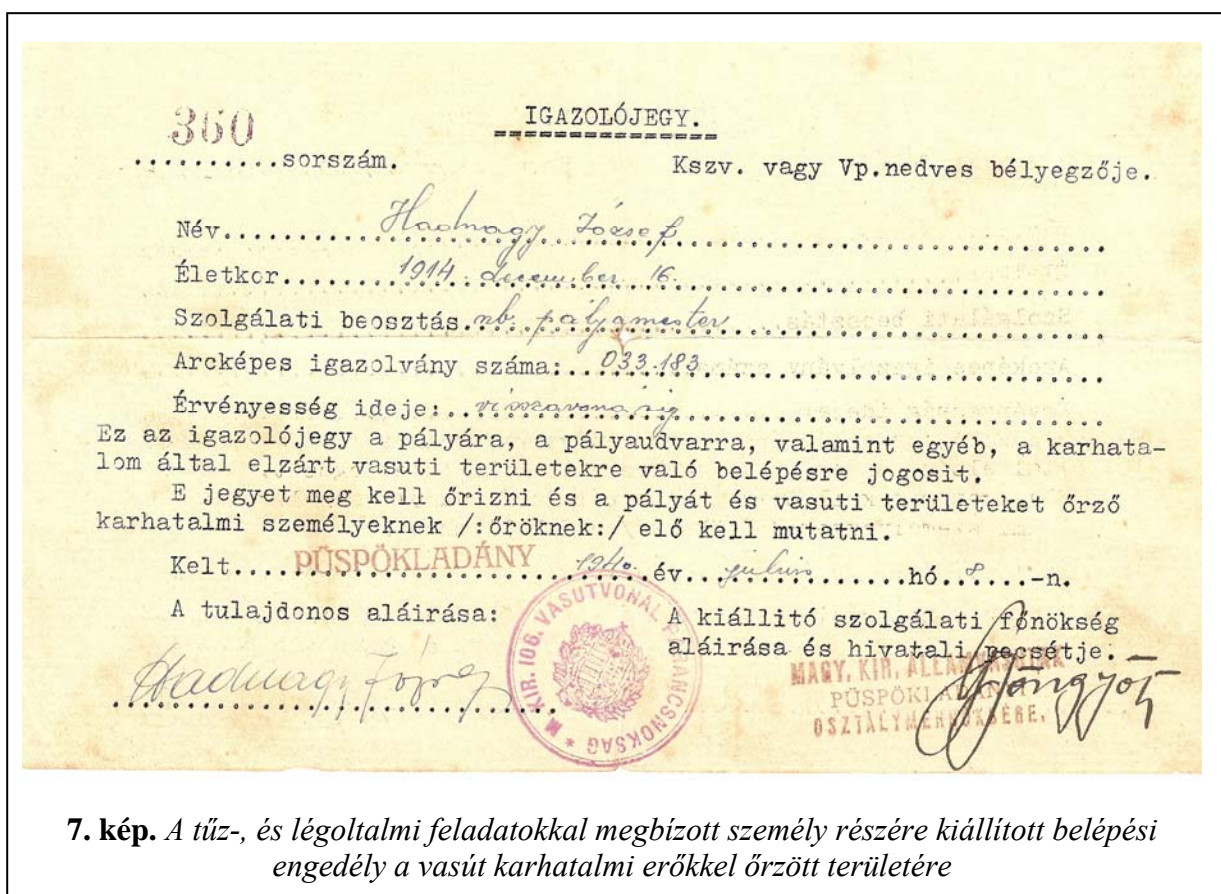 360
IGAZOLÓJEGY.
..........sorszám.
Kszv. vagy Vp.nedves bélyegzője.
Név.......... Hadnagy József
Életkor.......... 1914. december 16.
Szolgálati beosztás. nb. pályamester
Arcképes igazolvány száma:.. 033.183
Érvényesség ideje:.. visszavonásig
Ez az igazolójegy a pályára, a pályaudvarra, valamint egyéb, a karhata-
lom által elzárt vasuti területekre való belépésre jogosit.
E jegyet meg kell őrizni és a pályát és vasuti területeket őrző
karhatalmi személyeknek /:őröknek:/ elő kell mutatni.
Kelt.... PÜSPÖKLADÁNY 1940. év.. julius ....hó. 8 ....-n.
A tulajdonos aláirása:
A kiállitó szolgálati főnökség
aláirása és hivatali pecsétje.
Hadnagy József
* M. KIR. 106. VASUTVONAL PARANCSNOKSÁG
MAGY. KIR. ÁLLAMVASUTAK
PÜSPÖKLADÁNY
OSZTÁLYMÉRNÖKSÉGE.
7. kép. A tűz-, és légoltalmi feladatokkal megbízott személy részére kiállított belépési
engedély a vasút karhatalmi erőkkel őrzött területére